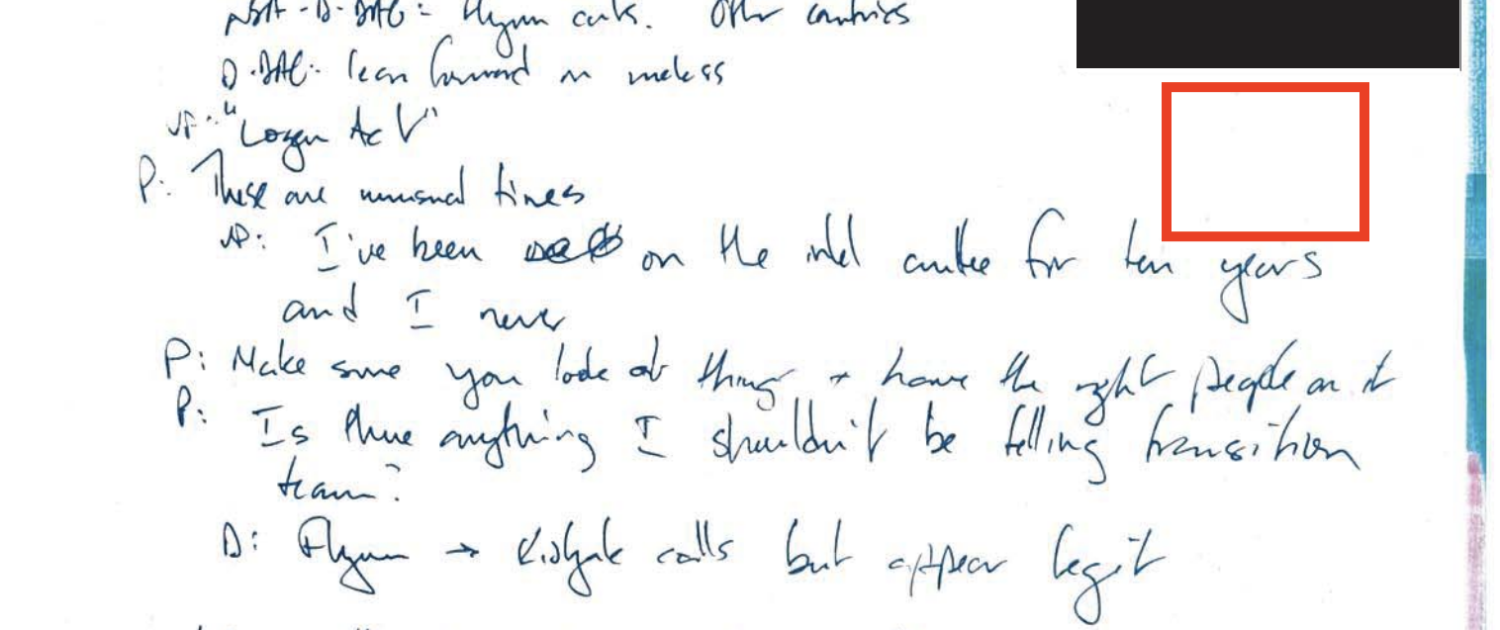 NSA-D-DAG: Flynn cuts. Other countries
D-DAG: lean forward on
VP: "Logan Act"
P: These are unusual times
VP: I've been on the intel cmtee for ten years
and I never
P: Make sure you look at things + have the right people on it
P: Is there anything I shouldn't be telling transition
team?
D: Flynn → Kislyak calls but appear legit